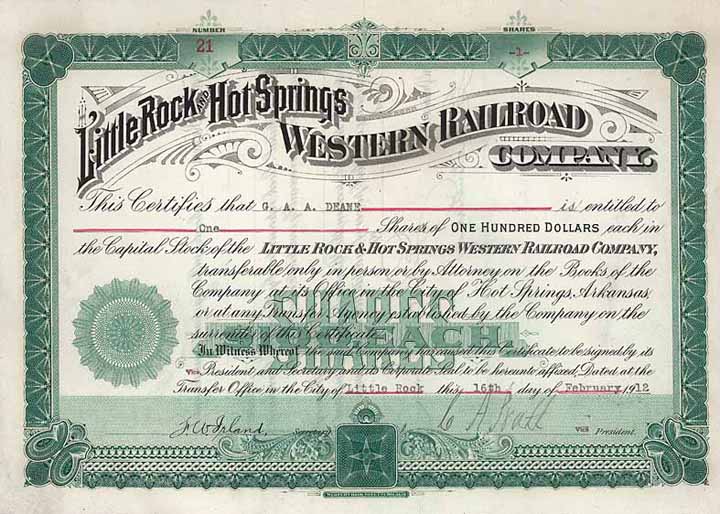 NUMBER SHARES
21 -1-
Little Rock AND Hot Springs
Western Railroad
Company
This Certifies that G. A. A. DEANE is entitled to
One Shares of ONE HUNDRED DOLLARS each in
the Capital Stock of the LITTLE ROCK & HOT SPRINGS WESTERN RAILROAD COMPANY,
transferable only in person or by Attorney on the Books of the
Company at its Office in the City of Hot Springs, Arkansas
or at any Transfer Agency established by the Company on the
surrender of this Certificate.
EACH
In Witness Whereof the said Company has caused this Certificate to be signed by its
Vice President and Secretary and its Corporate Seal to be hereunto affixed. Dated at the
Transfer Office in the City of Little Rock this 16th day of February 1912
Secretary Vice President.